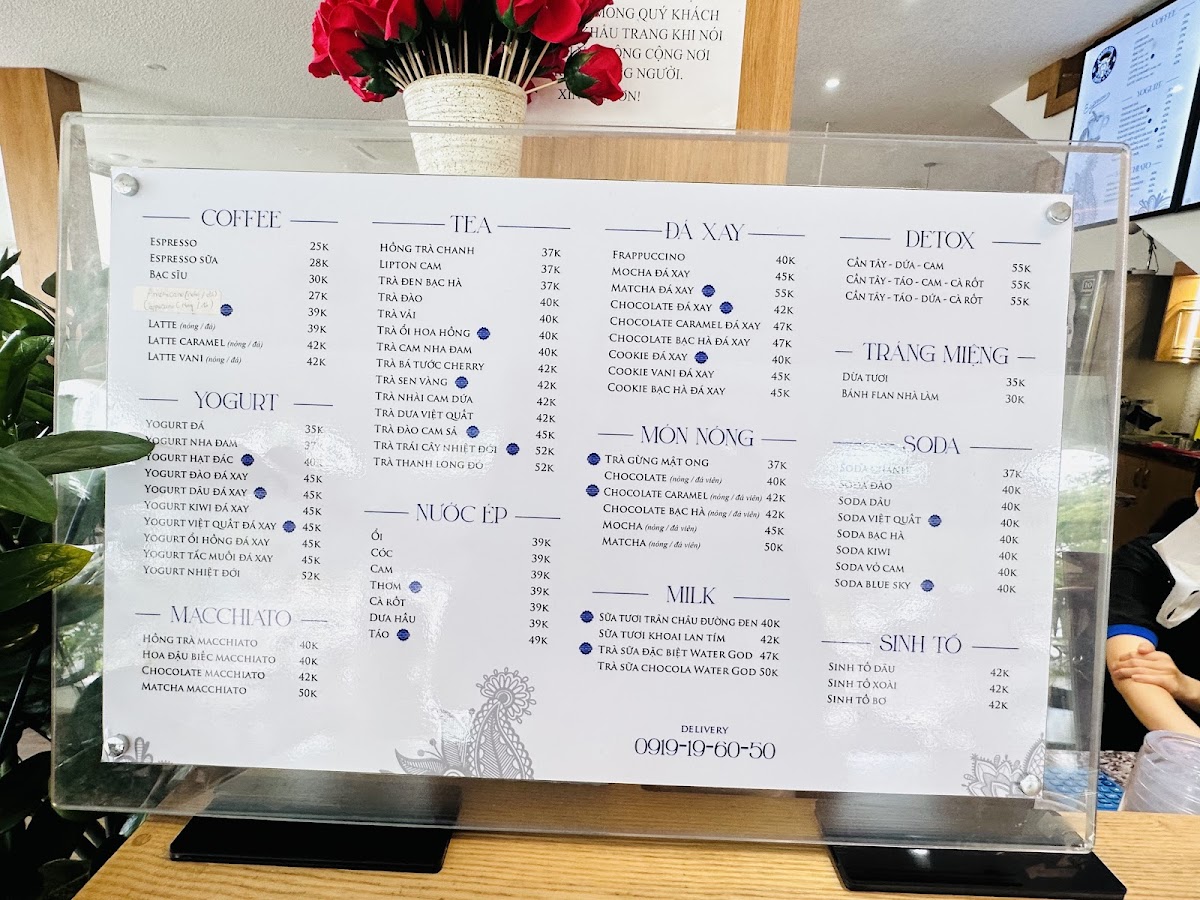 MONG QUÝ KHÁCH
KHẨU TRANG KHI NÓI
CÔNG CỘNG NƠI
NGƯỜI.
COFFEE
ESPRESSO 25K
ESPRESSO SỮA 28K
BẠC SỈU 30K
Americano (nóng / đá) 27K
Cappuccino (nóng / đá) 39K
LATTE (nóng / đá) 39K
LATTE CARAMEL (nóng / đá) 42K
LATTE VANI (nóng / đá) 42K
YOGURT
YOGURT ĐÁ 35K
YOGURT NHA ĐAM
YOGURT HẠT ĐÁC 40K
YOGURT ĐÀO ĐÁ XAY 45K
YOGURT DÂU ĐÁ XAY 45K
YOGURT KIWI ĐÁ XAY 45K
YOGURT VIỆT QUẤT ĐÁ XAY 45K
YOGURT ỔI HỒNG ĐÁ XAY 45K
YOGURT TẮC MUỐI ĐÁ XAY 45K
YOGURT NHIỆT ĐỚI 52K
MACCHIATO
HỒNG TRÀ MACCHIATO 40K
HOA ĐẬU BIẾC MACCHIATO 40K
CHOCOLATE MACCHIATO 42K
MATCHA MACCHIATO 50K
TEA
HỒNG TRÀ CHANH 37K
LIPTON CAM 37K
TRÀ ĐEN BẠC HÀ 37K
TRÀ ĐÀO 40K
TRÀ VẢI 40K
TRÀ ỔI HOA HỒNG 40K
TRÀ CAM NHA ĐAM 40K
TRÀ BÁ TƯỚC CHERRY 42K
TRÀ SEN VÀNG 42K
TRÀ NHÀI CAM DỨA 42K
TRÀ DƯA VIỆT QUẤT 42K
TRÀ ĐÀO CAM SẢ 45K
TRÀ TRÁI CÂY NHIỆT ĐỚI 52K
TRÀ THANH LONG ĐỎ 52K
NƯỚC ÉP
ỔI 39K
CÓC 39K
CAM 39K
THƠM 39K
CÀ RỐT 39K
DƯA HẤU 39K
TÁO 49K
ĐÁ XAY
FRAPPUCCINO 40K
MOCHA ĐÁ XAY 45K
MATCHA ĐÁ XAY 55K
CHOCOLATE ĐÁ XAY 42K
CHOCOLATE CARAMEL ĐÁ XAY 47K
CHOCOLATE BẠC HÀ ĐÁ XAY 47K
COOKIE ĐÁ XAY 40K
COOKIE VANI ĐÁ XAY 45K
COOKIE BẠC HÀ ĐÁ XAY 45K
MÓN NÓNG
TRÀ GỪNG MẬT ONG 37K
CHOCOLATE (nóng / đá viên) 40K
CHOCOLATE CARAMEL (nóng / đá viên) 42K
CHOCOLATE BẠC HÀ (nóng / đá viên) 42K
MOCHA (nóng / đá viên) 45K
MATCHA (nóng / đá viên) 50K
MILK
SỮA TƯƠI TRÂN CHÂU ĐƯỜNG ĐEN 40K
SỮA TƯƠI KHOAI LAN TÍM 42K
TRÀ SỮA ĐẶC BIỆT WATER GOD 47K
TRÀ SỮA CHOCOLA WATER GOD 50K
DELIVERY
0919-19-60-50
DETOX
CẦN TÂY - DỨA - CAM 55K
CẦN TÂY - TÁO - CAM - CÀ RỐT 55K
CẦN TÂY - TÁO - DỨA - CÀ RỐT 55K
TRÁNG MIỆNG
DỪA TƯƠI 35K
BÁNH FLAN NHÀ LÀM 30K
SODA
SODA CHANH 37K
SODA ĐÀO 40K
SODA DÂU 40K
SODA VIỆT QUẤT 40K
SODA BẠC HÀ 40K
SODA KIWI 40K
SODA VỎ CAM 40K
SODA BLUE SKY 40K
SINH TỐ
SINH TỐ DÂU 42K
SINH TỐ XOÀI 42K
SINH TỐ BƠ 42K
COFFEE
YOGURT